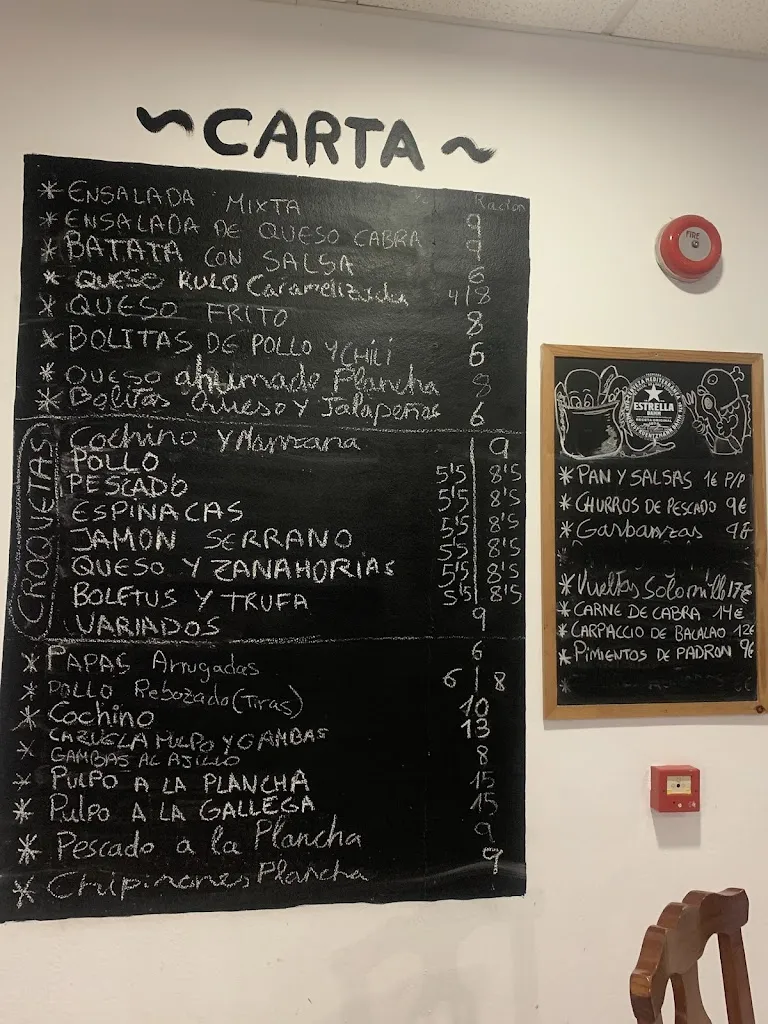 ~CARTA~
Ración
* ENSALADA MIXTA 9
* ENSALADA DE QUESO CABRA 9
* BATATA CON SALSA 6
* QUESO RULO Caramelizida 4/8
* QUESO FRITO 8
* BOLITAS DE POLLO Y CHILI 6
* QUESO ahumado Plancha 8
* Bolitas Queso y Jalapeños 6
CROQUETAS
Cochino y Manzana 9
POLLO 5'5 8'5
PESCADO 5'5 8'5
ESPINACAS 5'5 8'5
JAMON SERRANO 5'5 8'5
QUESO Y ZANAHORIAS 5'5 8'5
BOLETUS Y TRUFA 5'5 8'5
VARIADOS 9
* PAPAS Arrugadas 6
* POLLO Rebozado (Tiras) 6 | 8
* Cochino 10
* CAZUELA PULPO Y GAMBAS 13
GAMBAS AL AJILLO 8
* PULPO A LA PLANCHA 15
* Pulpo A LA GALLEGA 15
* Pescado a la Plancha 9
* Chipirones Plancha 9
FIRE
CERVEZA MEDITERRÁNEA
ESTRELLA
DAMM
* PAN Y SALSAS 1€ P/P
* CHURROS DE PESCADO 9€
* Garbanzas
* Vueltas Solomillo 17€
* CARNE DE CABRA 14€
* CARPACCIO DE BACALAO 12€
* PIMIENTOS DE PADRON 9€